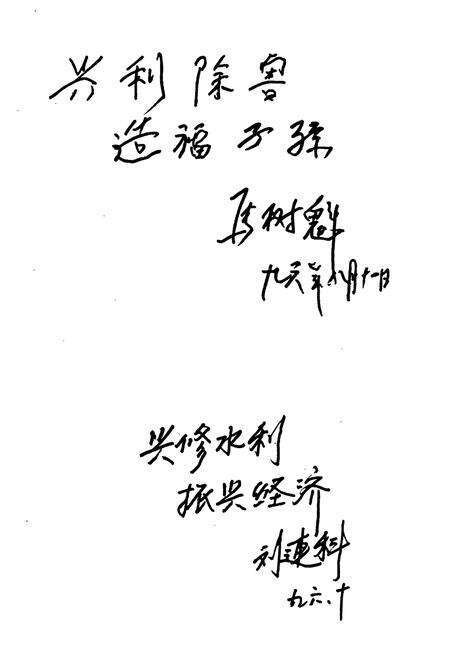 兴利除害
造福子孙
马树魁
九六年八月十一日
兴修水利
振兴经济
刘连科
九六.十